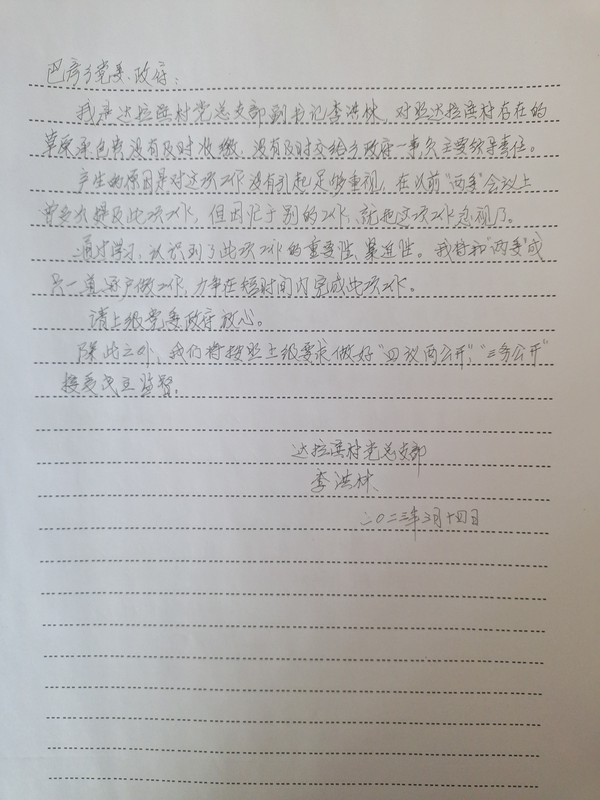 巴彦乡党委、政府:
我是达拉滨村党总支部副书记李洪林,对照达拉滨村存在的
草原承包费没有及时收缴,没有及时交给乡政府一事,负主要领导责任。
产生的原因是对这次工作没有引起足够重视,在以前"两委"会议上
曾多次提及此次工作,但因忙于别的工作,就把这次工作忽视了。
通过学习,认识到了此次工作的重要性、紧迫性。我将和"两委"成
员一道逐户做工作,力争在短时间内完成此次工作。
请上级党委政府放心。
除此之外,我们将按照上级要求做好"四议两公开","三务公开"
接受民主监督。
达拉滨村党总支部
李洪林
二〇二三年三月十四日